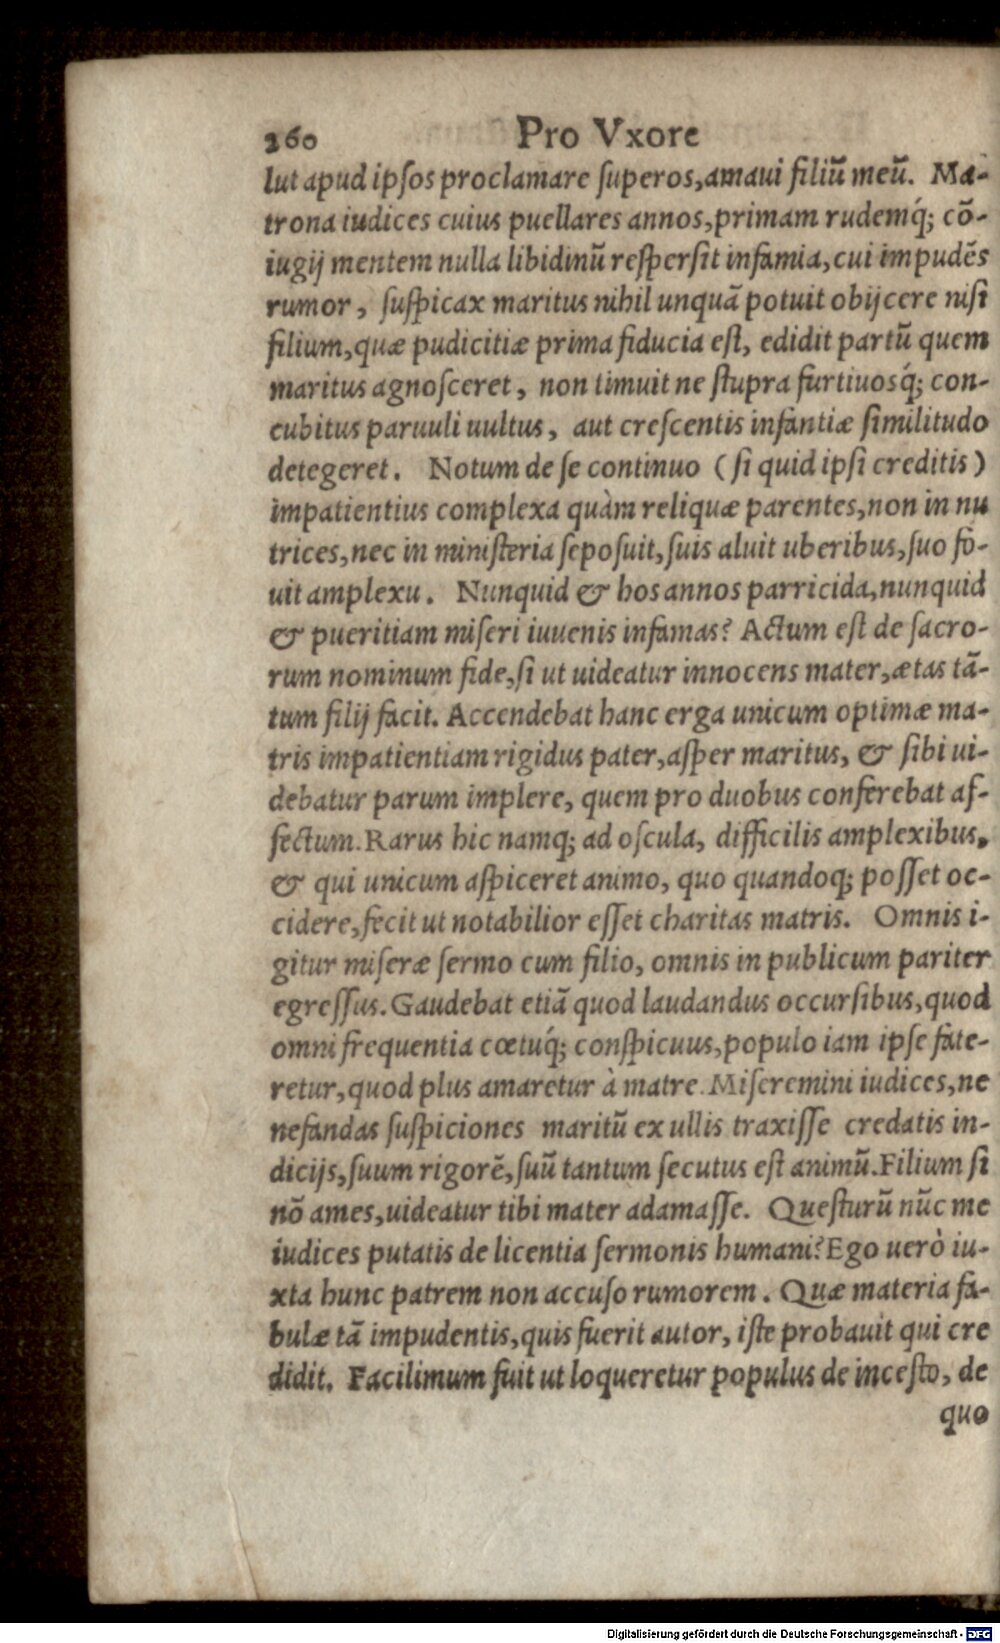 260 Pro Vxore
lut apud ipſos proclamare ſuperos, amaui filiū meū. Ma-
trona iudices cuius puellares annos, primam rudemq́; cō-
iugij mentem nulla libidinū reſperſit infamia, cui impudēs
rumor, ſuſpicax maritus nihil unquā potuit obijcere niſi
filium, quæ pudicitiæ prima fiducia eſt, edidit partū quem
maritus agnoſceret, non timuit ne ſtupra furtiuosq́; con-
cubitus paruuli uultus, aut creſcentis infantiæ ſimilitudo
detegeret. Notum de ſe continuo (ſi quid ipſi creditis)
impatientius complexa quàm reliquæ parentes, non in nu
trices, nec in miniſteria ſepoſuit, ſuis aluit uberibus, ſuo fo-
uit amplexu. Nunquid & hos annos parricida, nunquid
& pueritiam miſeri iuuenis infamas? Actum eſt de ſacro-
rum nominum fide, ſi ut uideatur innocens mater, ætas tā-
tum filij facit. Accendebat hanc erga unicum optimæ ma-
tris impatientiam rigidus pater, aſper maritus, & ſibi ui-
debatur parum implere, quem pro duobus conferebat af-
fectum. Rarus hic namq; ad oſcula, difficilis amplexibus,
& qui unicum aſpiceret animo, quo quandoq; poſſet oc-
cidere, fecit ut notabilior eſſet charitas matris. Omnis i-
gitur miſeræ ſermo cum filio, omnis in publicum pariter
egreſſus. Gaudebat etiā quod laudandus occurſibus, quod
omni frequentia cœtuq́; conſpicuus, populo iam ipſe fate-
retur, quod plus amaretur à matre. Miſeremini iudices, ne
nefandas ſuſpiciones maritū ex ullis traxiſſe credatis in-
dicijs, ſuum rigorē, ſuū tantum ſecutus eſt animū. Filium ſi
nō ames, uideatur tibi mater adamaſſe. Queſturū nūc me
iudices putatis de licentia ſermonis humani? Ego uerò iu-
xta hunc patrem non accuſo rumorem. Quæ materia fa-
bulæ tā impudentis, quis fuerit autor, iſte probauit qui cre
didit. Facilimum fuit ut loqueretur populus de inceſto, de
quo
Digitalisierung gefördert durch die Deutsche Forschungsgemeinschaft - DFG